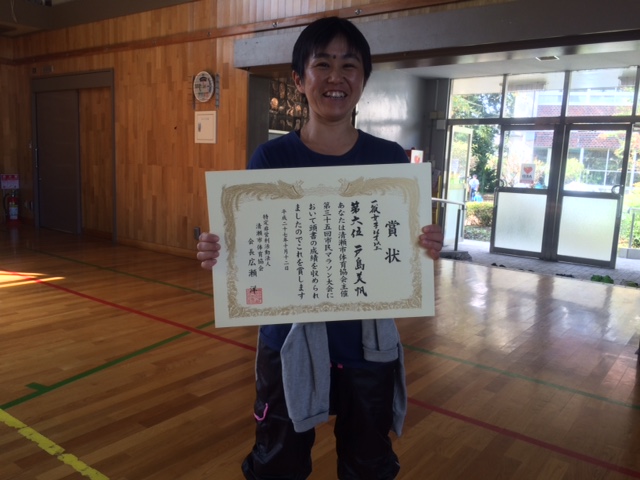 賞状
第六位 戸島美帆
あなたは清瀬市体育協会主催
第三十五回市民マラソン大会に
おいて頭書の成績を収められ
ましたのでこれを賞します
平成二十七年十月十二日
特定非営利活動法人
清瀬市体育協会
会長 広瀬